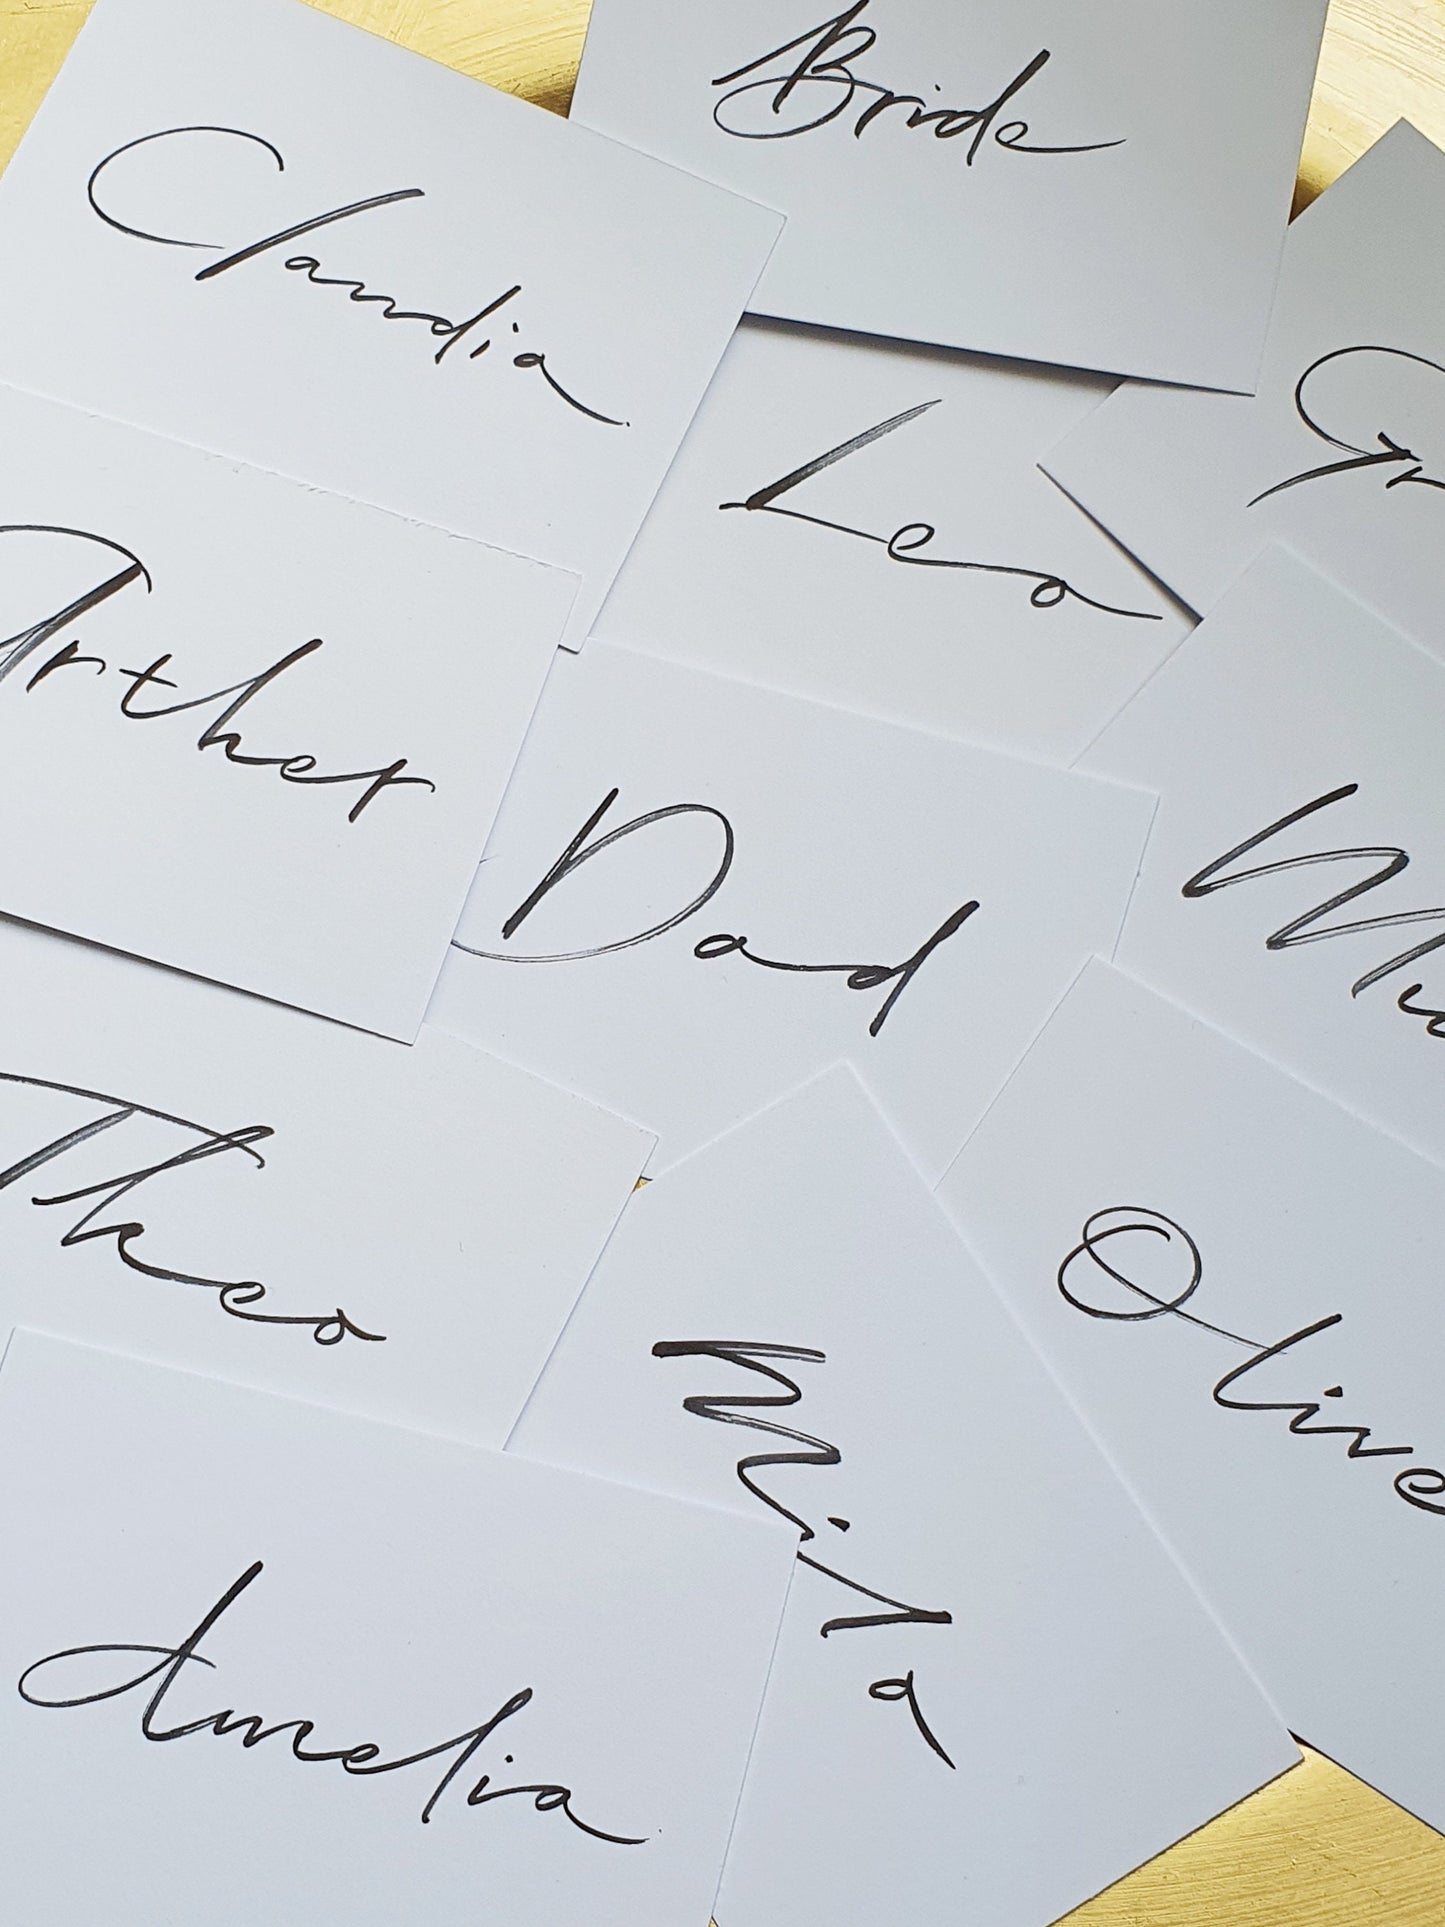 Bride
Claudia
Leo
Gr
Arther
Dad
Theo
Olive
Mila
Amelia